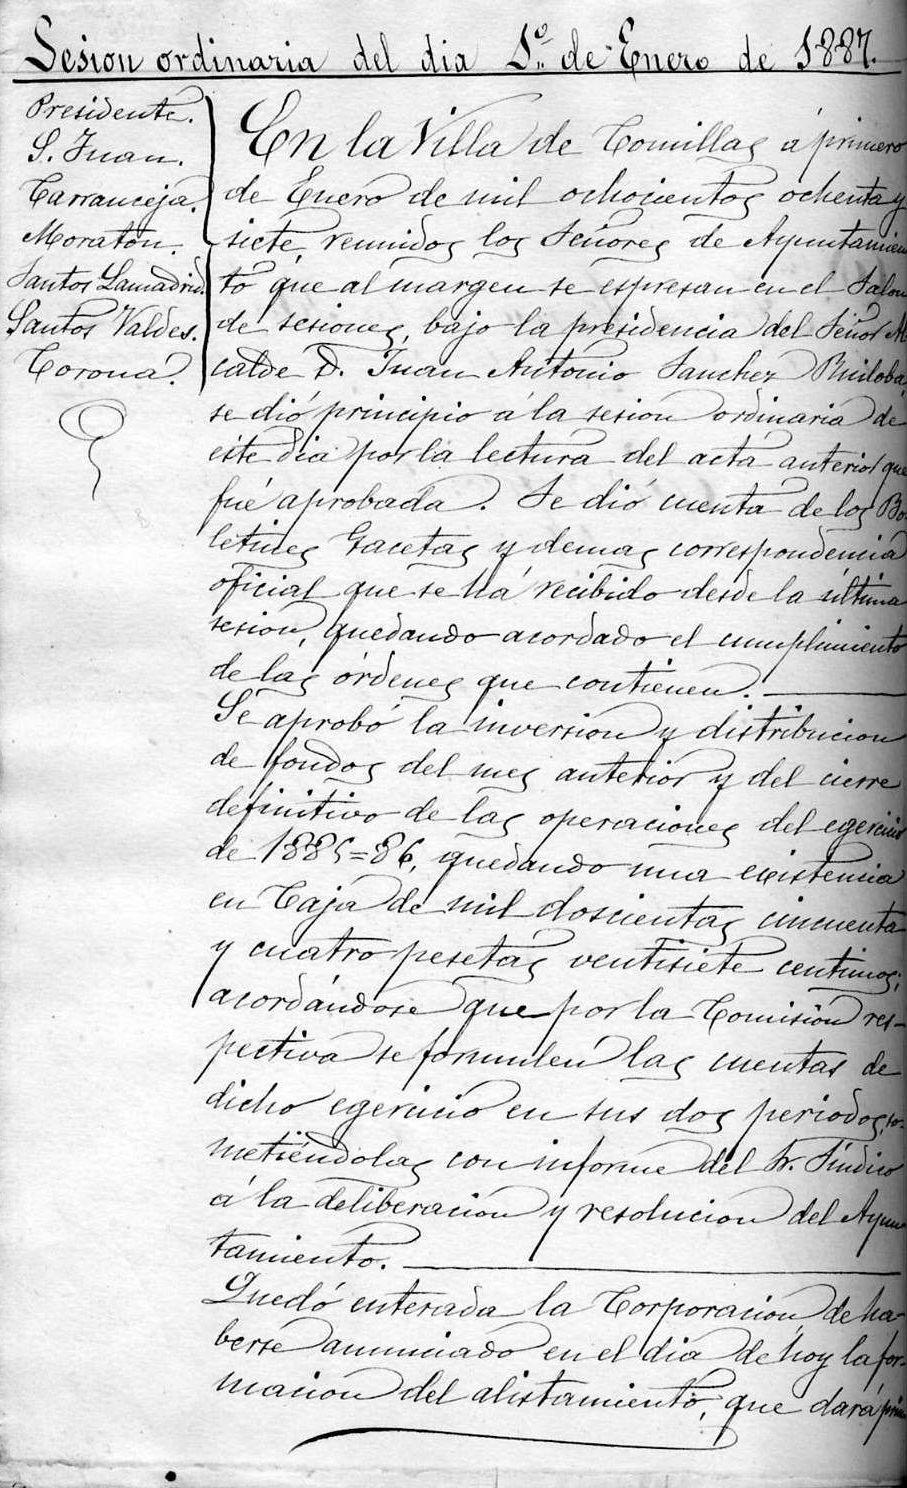 Sesion ordinaria del dia 1º de Enero de 1887.
Presidente.
S. Juan.
Carranceja.
Moraton.
Santos Lamadrid.
Santos Valdes.
Corona.
En la Villa de Comillas á primero
de Enero de mil ochocientos ochenta y
siete, reunidos los Señores de Ayuntamien
to que al margen se espresan en el Salon
de sesiones, bajo la presidencia del Señor Al
calde D. Juan Antonio Sanchez Ruiloba,
se dió principio á la sesion ordinaria de
este dia por la lectura del acta anterior que
fué aprobada. Se dió cuenta de los Bo-
letines Gacetas y demas correspondencia
oficial que se há recibido desde la última
sesion, quedando acordado el cumplimiento
de las órdenes que contienen.
Se aprobó la inversion y distribucion
de fondos del mes anterior y del cierre
definitivo de las operaciones del egercicio
de 1885=86, quedando una existencia
en Caja de mil doscientas cincuenta
y cuatro pesetas ventisiete centimos;
acordándose que por la Comision res-
pectiva se formulen las cuentas de
dicho egercicio en sus dos periodos, so-
metiéndolas con informe del Sr. Síndico
á la deliberacion y resolucion del Ayun
tamiento.
Quedó enterada la Corporacion, de ha-
berse anunciado en el dia de hoy la for-
macion del alistamiento, que dará prin